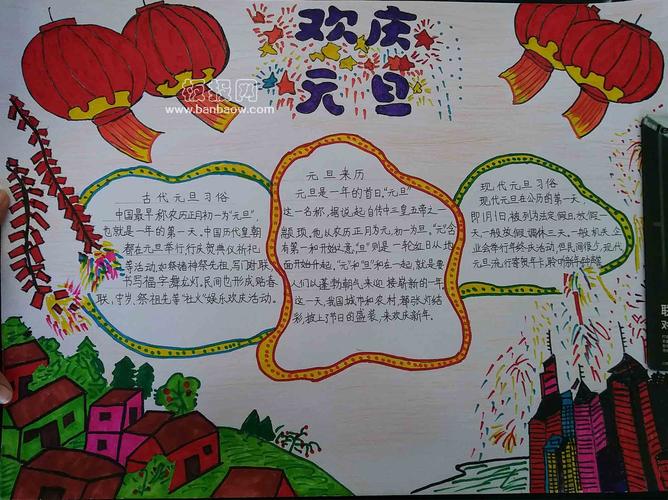 欢庆
元旦
板报网
www.banbaow.com
古代元旦习俗
中国最早称农历正月初一为“元旦”,
也就是一年的第一天。中国历代皇朝
都在元旦举行庆贺典仪祈祀
等活动,如祭诸神祭先祖,写门对联、
书写福字、舞龙灯,民间也形成贴春
联、守岁、祭祖先等“社火”娱乐欢庆活动。
元旦来历
元旦是一年的首日,“元旦”
这一名称,据说,起自传中三皇五帝之一
颛顼,他从农历正月为元,初一为旦。“元”含
有第一和开始之意,“旦”则是一轮红日从地
面开始升起,“元”和“旦”和在一起,就是要
人们以蓬勃朝气来迎接崭新的一年。
这一天,我国城市和农村,都张灯结
彩,披上了节日的盛装,来欢庆新年。
现代元旦习俗
现代元旦在公历的第一天,
即1月1日,被列为法定假日,放假一
天,一般放假,调休三天。一般机关、企
业会举行年终庆活动,但民间很少,现代
元旦流行寄贺年卡,聆听新年钟声